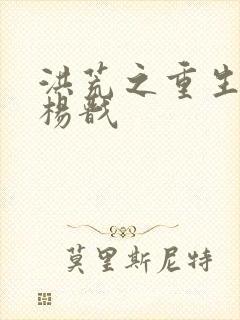 洪荒之重生
杨戬
莫里斯尼特